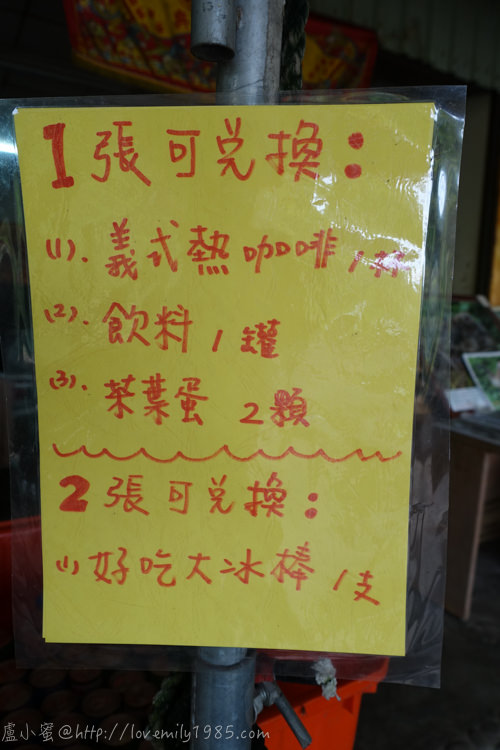 1張可兌換:
(1). 義式熱咖啡1杯
(2). 飲料1罐
(3). 茶葉蛋 2顆
2張可兌換:
(1) 好吃大冰棒1支
盧小蜜@http://lovemily1985.com/